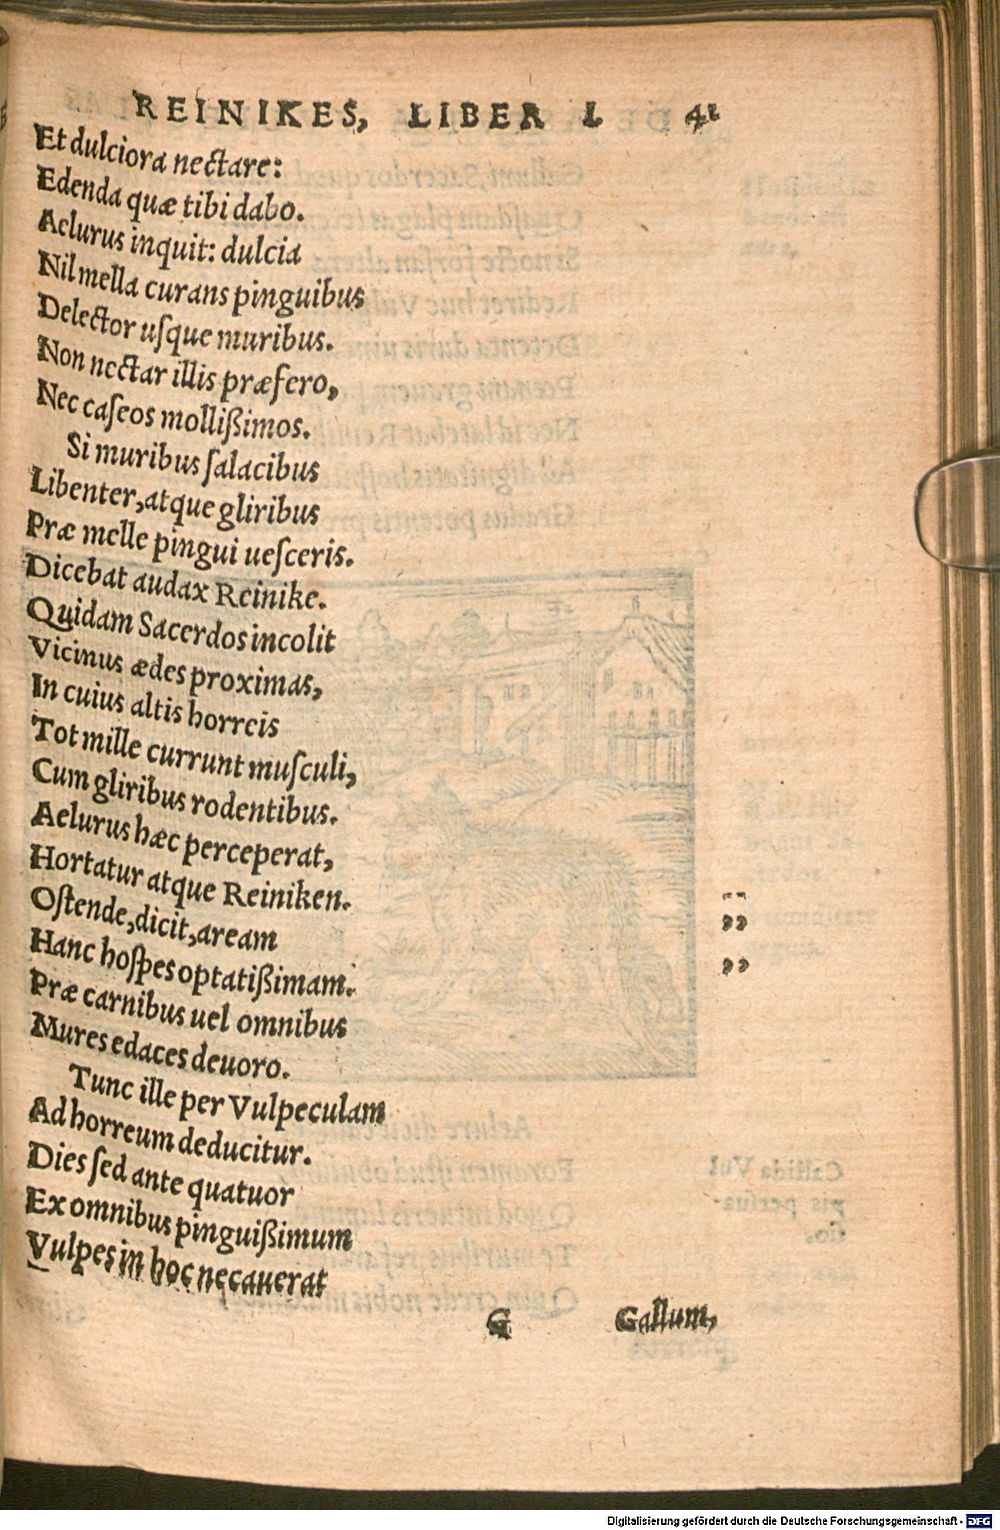 REINIKES, LIBER I. 41
Et dulciora nectare:
Edenda quæ tibi dabo.
Aelurus inquit: dulcia
Nil mella curans pinguibus
Delector uſque muribus.
Non nectar illis præfero,
Nec caſeos mollißimos.
Si muribus ſalacibus
Libenter, atque gliribus
Præ melle pingui ueſceris.
Dicebat audax Reinike.
Quidam Sacerdos incolit
Vicinus ædes proximas,
In cuius altis horreis
Tot mille currunt muſculi,
Cum gliribus rodentibus.
Aelurus hæc perceperat,
Hortatur atque Reiniken.
Oſtende, dicit, aream
Hanc hoſpes optatißimam.
Præ carnibus uel omnibus
Mures edaces deuoro.
Tunc ille per Vulpeculam
Ad horreum deducitur.
Dies ſed ante quatuor
Ex omnibus pinguißimum
Vulpes in hoc necauerat
G Gallum,
Digitalisierung gefördert durch die Deutsche Forschungsgemeinschaft - DFG